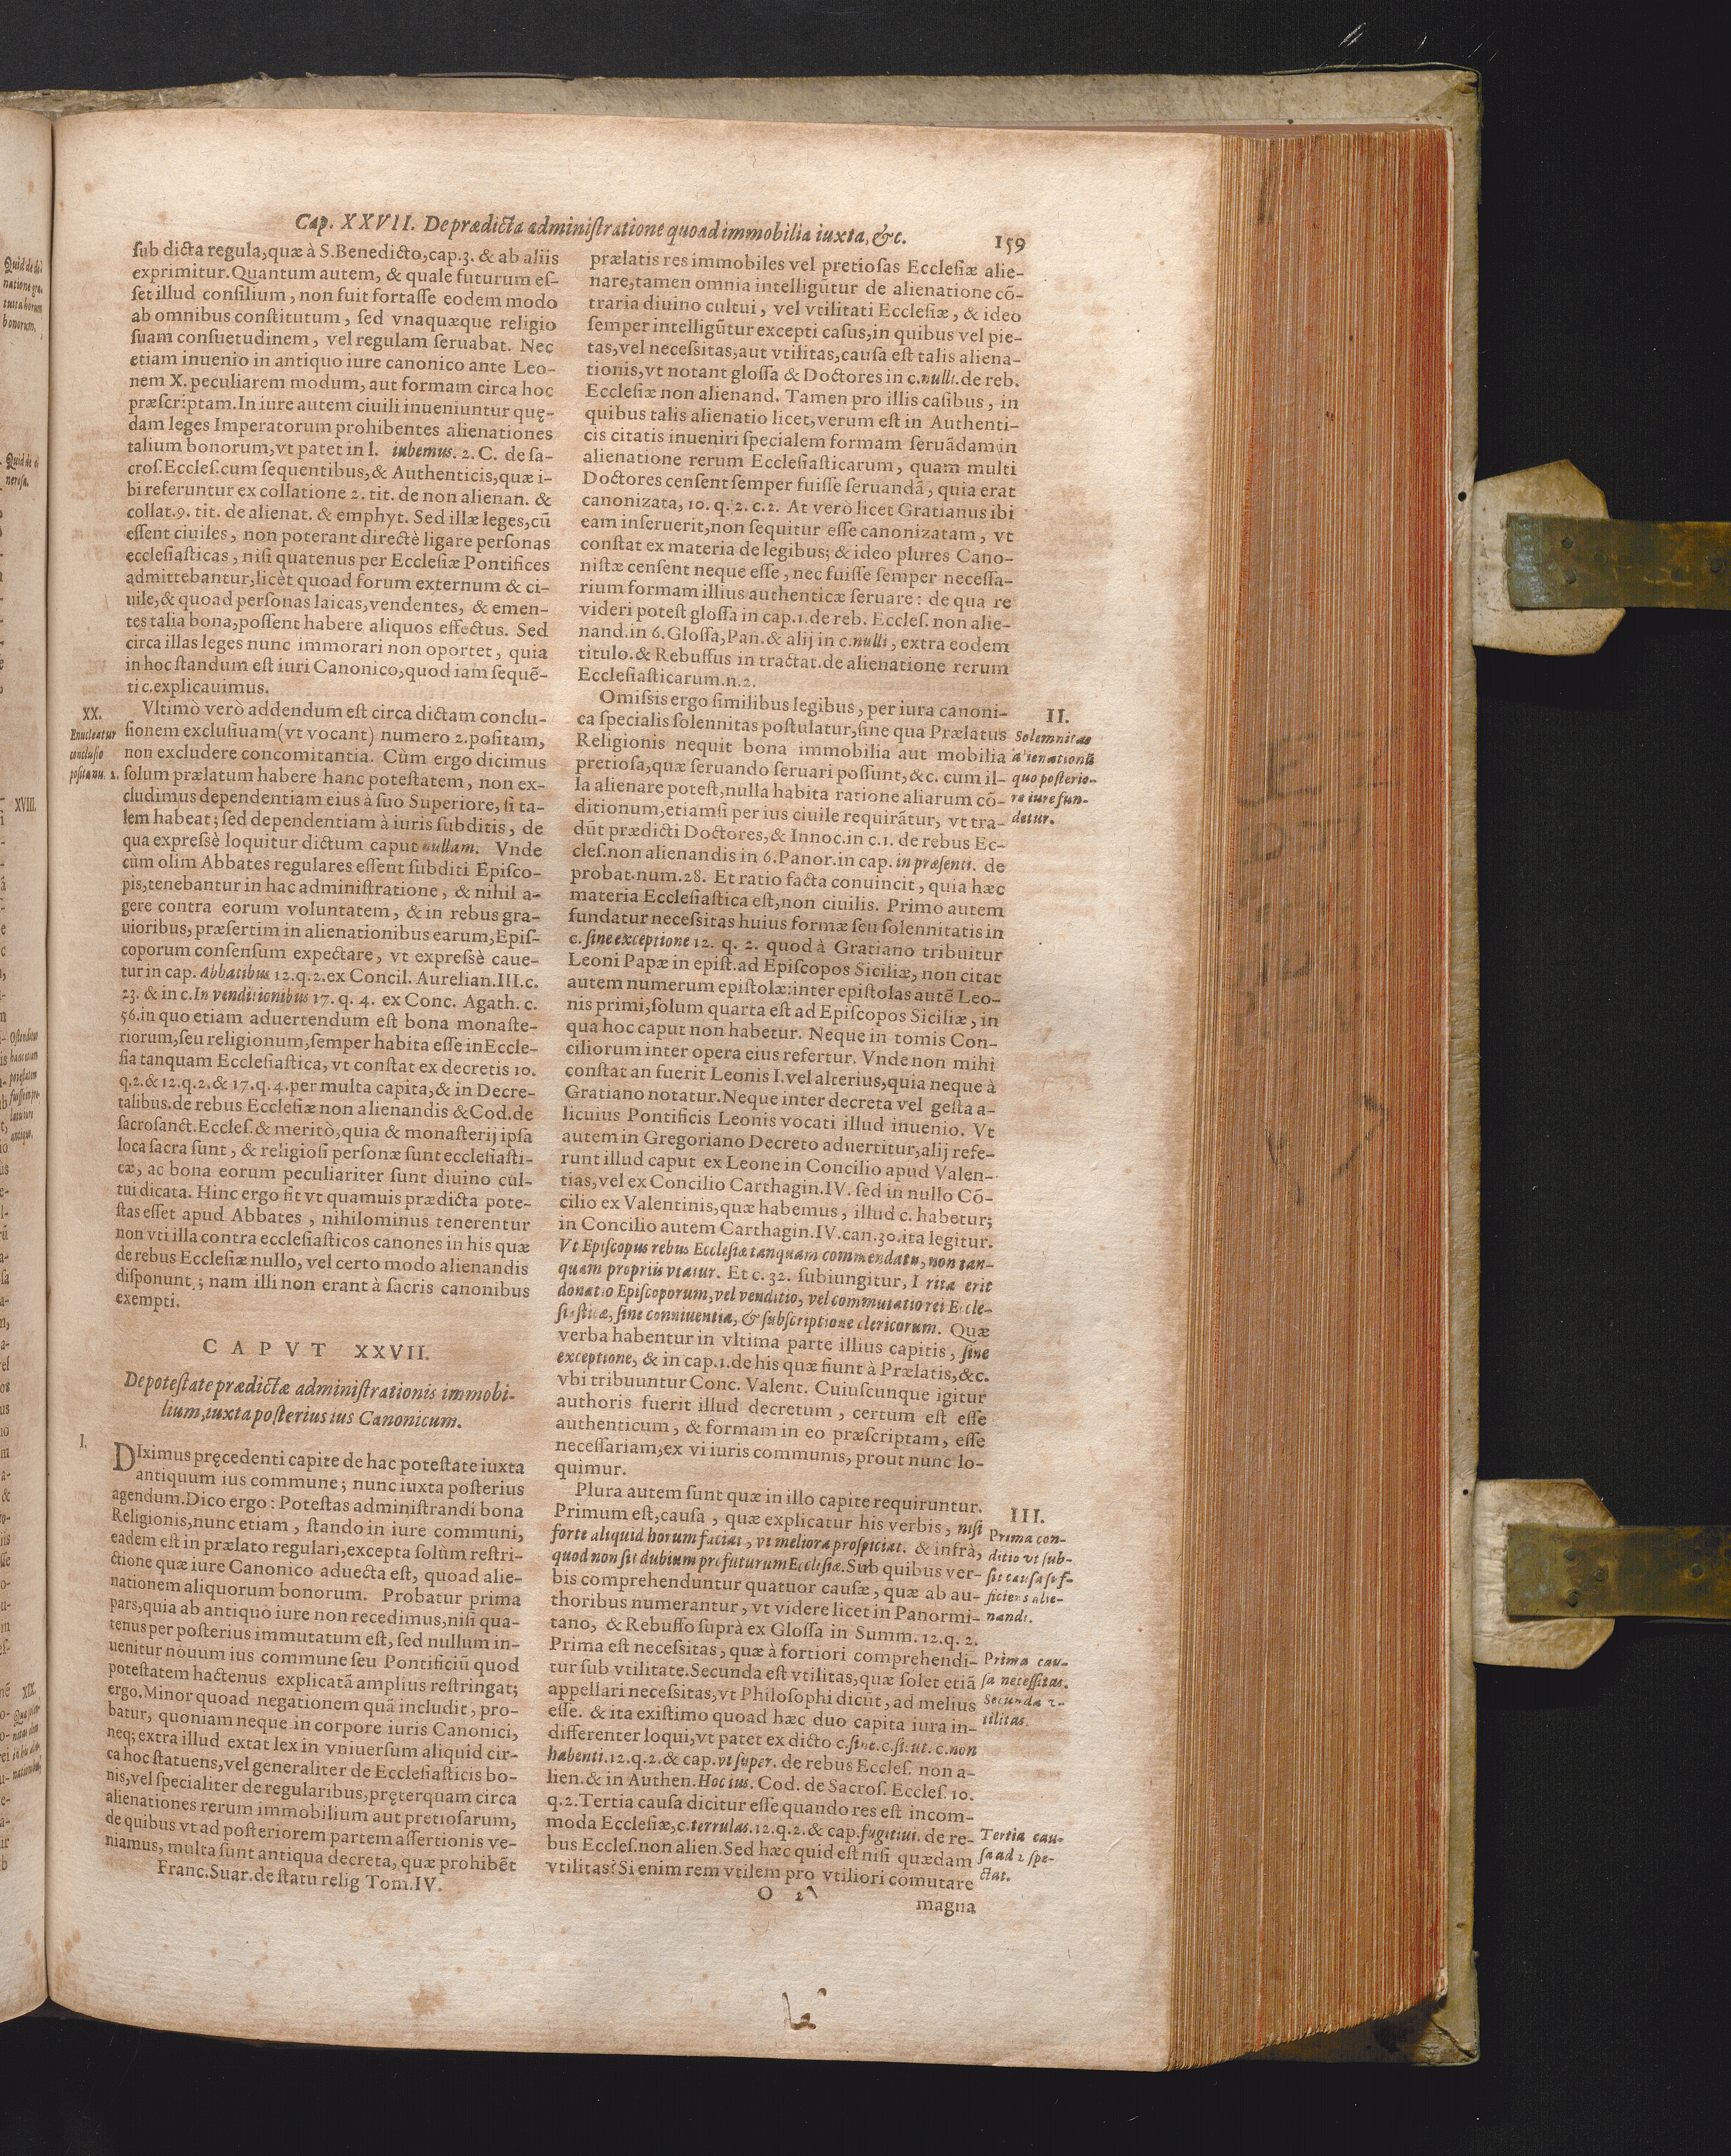 Cap. XXVII. De prædicta administratione quoad immobilia iuxta, &c. 159
sub dicta regula, quæ à S. Benedicto, cap. 3. & ab aliis
exprimitur. Quantum autem, & quale futurum es-
set illud consilium, non fuit fortasse eodem modo
ab omnibus constitutum, sed vnaquæque religio
suam consuetudinem, vel regulam seruabat. Nec
etiam inuenio in antiquo iure canonico ante Leo-
nem X. peculiarem modum, aut formam circa hoc
præscriptam. In iure autem ciuili inueniuntur quę-
dam leges Imperatorum prohibentes alienationes
talium bonorum, vt patet in l. iubemus. 2. C. de sa-
cros. Eccles. cum sequentibus, & Authenticis, quæ i-
bi referuntur ex collatione 2. tit. de non alienan. &
collat. 9. tit. de alienat. & emphyt. Sed illæ leges, cũ
essent ciuiles, non poterant directè ligare personas
ecclesiasticas, nisi quatenus per Ecclesiæ Pontifices
admittebantur, licèt quoad forum externum & ci-
uile, & quoad personas laicas, vendentes, & emen-
tes talia bona, possent habere aliquos effectus. Sed
circa illas leges nunc immorari non oportet, quia
in hoc standum est iuri Canonico, quod iam sequẽ-
ti c. explicauimus.
XX.
Enucleatur
conclusio
posita nu. 2.
Vltimò verò addendum est circa dictam conclu-
sionem exclusiuam (vt vocant) numero 2. positam,
non excludere concomitantia. Cùm ergo dicimus
solum prælatum habere hanc potestatem, non ex-
cludimus dependentiam eius à suo Superiore, si ta-
lem habeat; sed dependentiam à iuris subditis, de
qua expressè loquitur dictum caput nullam. Vnde
cùm olim Abbates regulares essent subditi Episco-
pis, tenebantur in hac administratione, & nihil a-
gere contra eorum voluntatem, & in rebus gra-
uioribus, præsertim in alienationibus earum, Epis-
coporum consensum expectare, vt expressè caue-
tur in cap. Abbatibus 12. q. 2. ex Concil. Aurelian. III. c.
23. & in c. In venditionibus 17. q. 4. ex Conc. Agath. c.
56. in quo etiam aduertendum est bona monaste-
riorum, seu religionum, semper habita esse in Eccle-
sia tanquam Ecclesiastica, vt constat ex decretis 10.
q. 2. & 12. q. 2. & 17. q. 4. per multa capita, & in Decre-
talibus. de rebus Ecclesiæ non alienandis & Cod. de
sacrosanct. Eccles. & meritò, quia & monasterij ipsa
loca sacra sunt, & religiosi personæ sunt ecclesiasti-
cæ, ac bona eorum peculiariter sunt diuino cul-
tui dicata. Hinc ergo fit vt quamuis prædicta pote-
stas esset apud Abbates, nihilominus tenerentur
non vti illa contra ecclesiasticos canones in his quæ
de rebus Ecclesiæ nullo, vel certo modo alienandis
disponunt; nam illi non erant à sacris canonibus
exempti.
CAPVT XXVII.
De potestate prædictæ administrationis immobi-
lium, iuxta posterius ius Canonicum.
I.
DIximus pręcedenti capite de hac potestate iuxta
antiquum ius commune; nunc iuxta posterius
agendum. Dico ergo: Potestas administrandi bona
Religionis, nunc etiam, stando in iure communi,
eadem est in prælato regulari, excepta solùm restri-
ctione quæ iure Canonico aduecta est, quoad alie-
nationem aliquorum bonorum. Probatur prima
pars, quia ab antiquo iure non recedimus, nisi qua-
tenus per posterius immutatum est, sed nullum in-
uenitur nouum ius commune seu Pontificiũ quod
potestatem hactenus explicatã amplius restringat;
ergo. Minor quoad negationem quã includit, pro-
batur, quoniam neque in corpore iuris Canonici,
neq; extra illud extat lex in vniuersum aliquid cir-
ca hoc statuens, vel generaliter de Ecclesiasticis bo-
nis, vel specialiter de regularibus, pręterquam circa
alienationes rerum immobilium aut pretiosarum,
de quibus vt ad posteriorem partem assertionis ve-
niamus, multa sunt antiqua decreta, quæ prohibẽt
Franc. Suar. de statu relig Tom. IV.
prælatis res immobiles vel pretiosas Ecclesiæ alie-
nare, tamen omnia intelligũtur de alienatione cõ-
traria diuino cultui, vel vtilitati Ecclesiæ, & ideo
semper intelligũtur excepti casus, in quibus vel pie-
tas, vel necessitas, aut vtilitas, causa est talis aliena-
tionis, vt notant glossa & Doctores in c. nulli. de reb.
Ecclesiæ non alienand. Tamen pro illis casibus, in
quibus talis alienatio licet, verum est in Authenti-
cis citatis inueniri specialem formam seruãdam in
alienatione rerum Ecclesiasticarum, quam multi
Doctores censent semper fuisse seruandã, quia erat
canonizata, 10. q. 2. c. 2. At verò licet Gratianus ibi
eam inseruerit, non sequitur esse canonizatam, vt
constat ex materia de legibus; & ideo plures Cano-
nistæ censent neque esse, nec fuisse semper necessa-
rium formam illius authenticæ seruare: de qua re
videri potest glossa in cap. 1. de reb. Eccles. non alie-
nand. in 6. Glossa, Pan. & alij in c. nulli, extra eodem
titulo. & Rebuffus in tractat. de alienatione rerum
Ecclesiasticarum. n. 2.
II.
Solemnitas
alienationis
quo posterio-
re iure fun-
detur.
Omissis ergo similibus legibus, per iura canoni-
ca specialis solennitas postulatur, sine qua Prælatus
Religionis nequit bona immobilia aut mobilia
pretiosa, quæ seruando seruari possunt, &c. cum il-
la alienare potest, nulla habita ratione aliarum cõ-
ditionum, etiamsi per ius ciuile requirãtur, vt tra-
dũt prædicti Doctores, & Innoc. in c. 1. de rebus Ec-
cles. non alienandis in 6. Panor. in cap. in præsenti. de
probat. num. 28. Et ratio facta conuincit, quia hæc
materia Ecclesiastica est, non ciuilis. Primo autem
fundatur necessitas huius formæ seu solennitatis in
c. sine exceptione 12. q. 2. quod à Gratiano tribuitur
Leoni Papæ in epist. ad Episcopos Siciliæ, non citat
autem numerum epistolæ: inter epistolas autẽ Leo-
nis primi, solum quarta est ad Episcopos Siciliæ, in
qua hoc caput non habetur. Neque in tomis Con-
ciliorum inter opera eius refertur. Vnde non mihi
constat an fuerit Leonis I. vel alterius, quia neque à
Gratiano notatur. Neque inter decreta vel gesta a-
licuius Pontificis Leonis vocati illud inuenio. Vt
autem in Gregoriano Decreto aduertitur, alij refe-
runt illud caput ex Leone in Concilio apud Valen-
tias, vel ex Concilio Carthagin. IV. sed in nullo Cõ-
cilio ex Valentinis, quæ habemus, illud c. habetur;
in Concilio autem Carthagin. IV. can. 30. ita legitur.
Vt Episcopus rebus Ecclesiæ tanquam commendatu, non tan-
quam propriis vtatur. Et c. 32. subiungitur, I rita erit
donatio Episcoporum, vel venditio, vel commutatio rei Eccle-
siasticæ, sine conniuentia, & subscriptione clericorum. Quæ
verba habentur in vltima parte illius capitis, sine
exceptione, & in cap. 1. de his quæ fiunt à Prælatis, &c.
vbi tribuuntur Conc. Valent. Cuiuscunque igitur
authoris fuerit illud decretum, certum est esse
authenticum, & formam in eo præscriptam, esse
necessariam, ex vi iuris communis, prout nunc lo-
quimur.
III.
Prima con-
ditio vt sub-
sit causa suf-
ficiens alie-
nandi.
Plura autem sunt quæ in illo capite requiruntur.
Primum est, causa, quæ explicatur his verbis, nisi
forte aliquid horum faciat, vt meliora prospiciat. & infrà,
quod non sit dubium profuturum Ecclesiæ. Sub quibus ver-
bis comprehenduntur quatuor causæ, quæ ab au-
thoribus numerantur, vt videre licet in Panormi-
tano, & Rebuffo suprà ex Glossa in Summ. 12. q. 2.
Prima est necessitas, quæ à fortiori comprehendi-
tur sub vtilitate. Secunda est vtilitas, quæ solet etiã
appellari necessitas, vt Philosophi dicũt, ad melius
esse. & ita existimo quoad hæc duo capita iura in-
differenter loqui, vt patet ex dicto c. sine. c. si. ut. c. non
habenti. 12. q. 2. & cap. vt super. de rebus Eccles. non a-
lien. & in Authen. Hoc ius. Cod. de Sacros. Eccles. 10.
q. 2. Tertia causa dicitur esse quando res est incom-
moda Ecclesiæ, c. terrulas. 12. q. 2. & cap. fugitiui. de re-
bus Eccles. non alien. Sed hæc quid est nisi quædam
vtilitas? Si enim rem vtilem pro vtiliori cõmutare
Prima cau-
sa necessitas.
Secunda v-
tilitas.
Tertia cau-
sa ad 2 spe-
ctat.
O 2
magna